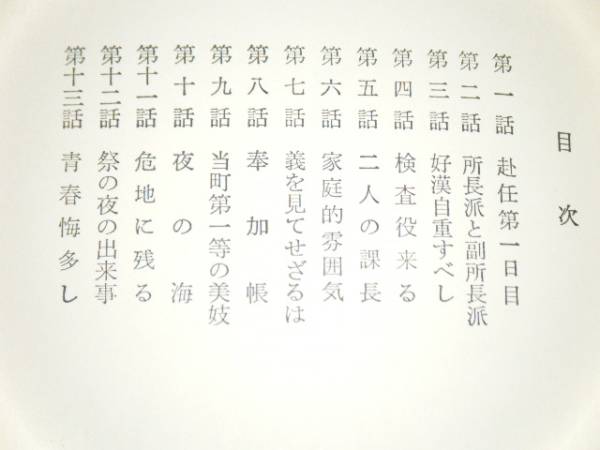 目次
第一話 赴任第一日目
第二話 所長派と副所長派
第三話 好漢自重すべし
第四話 検査役来る
第五話 二人の課長
第六話 家庭的雰囲気
第七話 義を見てせざるは
第八話 奉加帳
第九話 当町第一等の美妓
第十話 夜の海
第十一話 危地に残る
第十二話 祭の夜の出来事
第十三話 青春悔多し